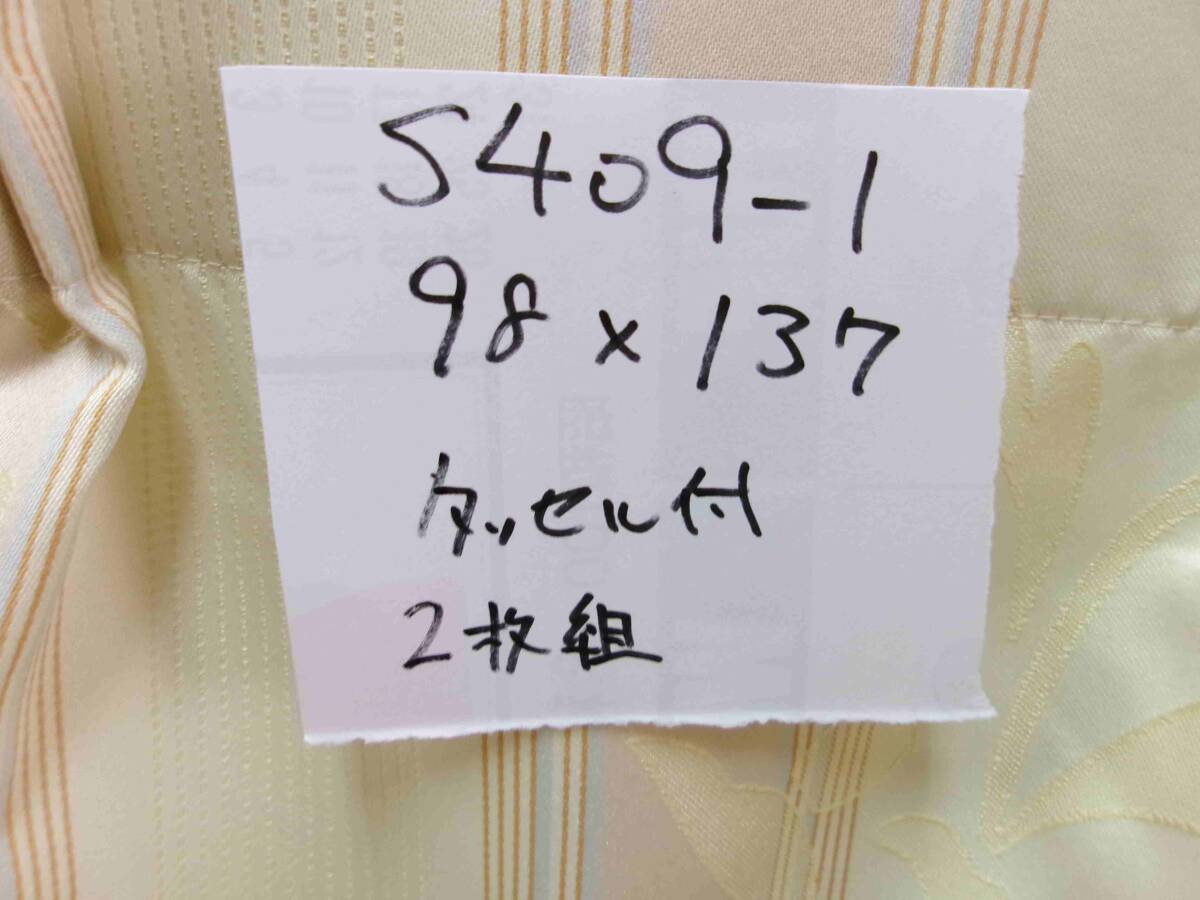 S409-1
98×137
タッセル付
2枚組